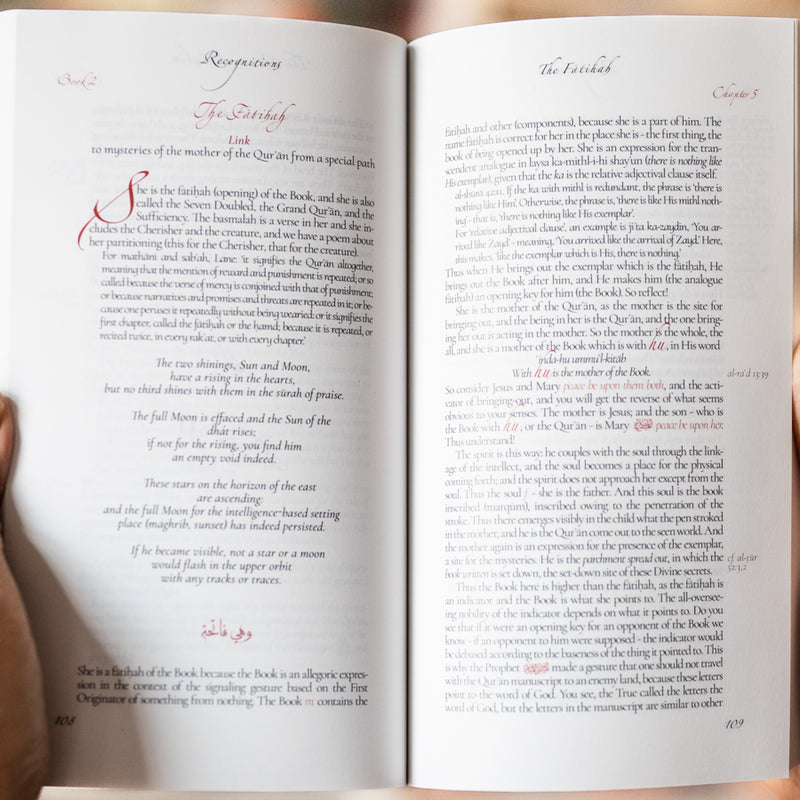 Recognitions
Book 2
The Fātiḥah
Link
to mysteries of the mother of the Qurʾān from a special path
She is the fātiḥah (opening) of the Book, and she is also
called the Seven Doubled, the Grand Qurʾān, and the
Sufficiency. The basmalah is a verse in her and she in-
cludes the Cherisher and the creature, and we have a poem about
her partitioning (this for the Cherisher, that for the creature).
For mathānī and sabʿah, Lane: 'it signifies the Qurʾān altogether,
meaning that the mention of reward and punishment is repeated; or so
called because the verse of mercy is conjoined with that of punishment;
or because narratives and promises and threats are repeated in it; or be-
cause one peruses it repeatedly without being wearied: or it signifies the
first chapter, called the fātiḥah or the ḥamd; because it is repeated, or
recited twice, in every rakʿat, or with every chapter.'
The two shinings, Sun and Moon,
have a rising in the hearts,
but no third shines with them in the sūrah of praise.
The full Moon is effaced and the Sun of the
dhāt rises;
if not for the rising, you find him
an empty void indeed.
These stars on the horizon of the east
are ascending;
and the full Moon for the intelligence-based setting
place (maghrib, sunset) has indeed persisted.
If he became visible, not a star or a moon
would flash in the upper orbit
with any tracks or traces.
وهي فاتحة
She is a fātiḥah of the Book because the Book is an allegoric expres-
sion in the context of the signaling gesture based on the First
Originator of something from nothing. The Book m contains the
108
The Fātiḥah
Chapter 5
fātiḥah and other (components), because she is a part of him. The
name fātiḥah is correct for her in the place she is - the first thing, the
book of being opened up by her. She is an expression for the tran-
scendent analogue in laysa ka-mithl-i-hi shayʾun (there is nothing like
His exemplar), given that the ka is the relative adjectival clause itself.
al-shūrā 42:11. If the ka with mithl is redundant, the phrase is 'there is
nothing like Him'. Otherwise, the phrase is, 'there is like His mithl noth-
ing' - that is, 'there is nothing like His exemplar'.
For 'relative adjectival clause', an example is jiʾta ka-zaydin, 'You ar-
rived like Zayd' - meaning, 'You arrived like the arrival of Zayd.' Here,
this makes, 'like the exemplar which is His, there is nothing.'
Thus when He brings out the exemplar which is the fātiḥah, He
brings out the Book after him, and He makes him (the analogue
fātiḥah) an opening key for him (the Book). So reflect!
She is the mother of the Qurʾān, as the mother is the site for
bringing out, and the being in her is the Qurʾān, and the one bring-
ing her out is acting in the mother. So the mother is the whole, the
all, and she is a mother of the Book which is with hu, in His word
ʿinda-hu ummu'l-kitāb
With hu is the mother of the Book.
al-raʿd 13:39
So consider Jesus and Mary peace be upon them both, and the acti-
vator of bringing-out, and you will get the reverse of what seems
obvious to your senses. The mother is Jesus; and the son - who is
the Book with hu, or the Qurʾān - is Mary peace be upon her.
Thus understand!
The spirit is this way: he couples with the soul through the link-
age of the intellect, and the soul becomes a place for the physical
coming forth; and the spirit does not approach her except from the
soul. Thus the soul f - she is the father. And this soul is the book
inscribed (marqūm), inscribed owing to the penetration of the
stroke. Thus there emerges visibly in the child what the pen stroked
in the mother, and he is the Qurʾān come out to the seen world. And
the mother again is an expression for the presence of the exemplar,
a site for the mysteries. He is the parchment spread out, in which the
book written is set down, the set-down site of these Divine secrets.
cf. al-ṭūr
52:3,2
Thus the Book here is higher than the fātiḥah, as the fātiḥah is
an indicator and the Book is what she points to. The all-oversee-
ing nobility of the indicator depends on what it points to. Do you
see that if it were an opening key for an opponent of the Book we
know - if an opponent to him were supposed - the indicator would
be debased according to the baseness of the thing it pointed to. This
is why the Prophet made a gesture that one should not travel
with the Qurʾān manuscript to an enemy land, because these letters
point to the word of God. You see, the True called the letters the
word of God, but the letters in the manuscript are similar to other
109